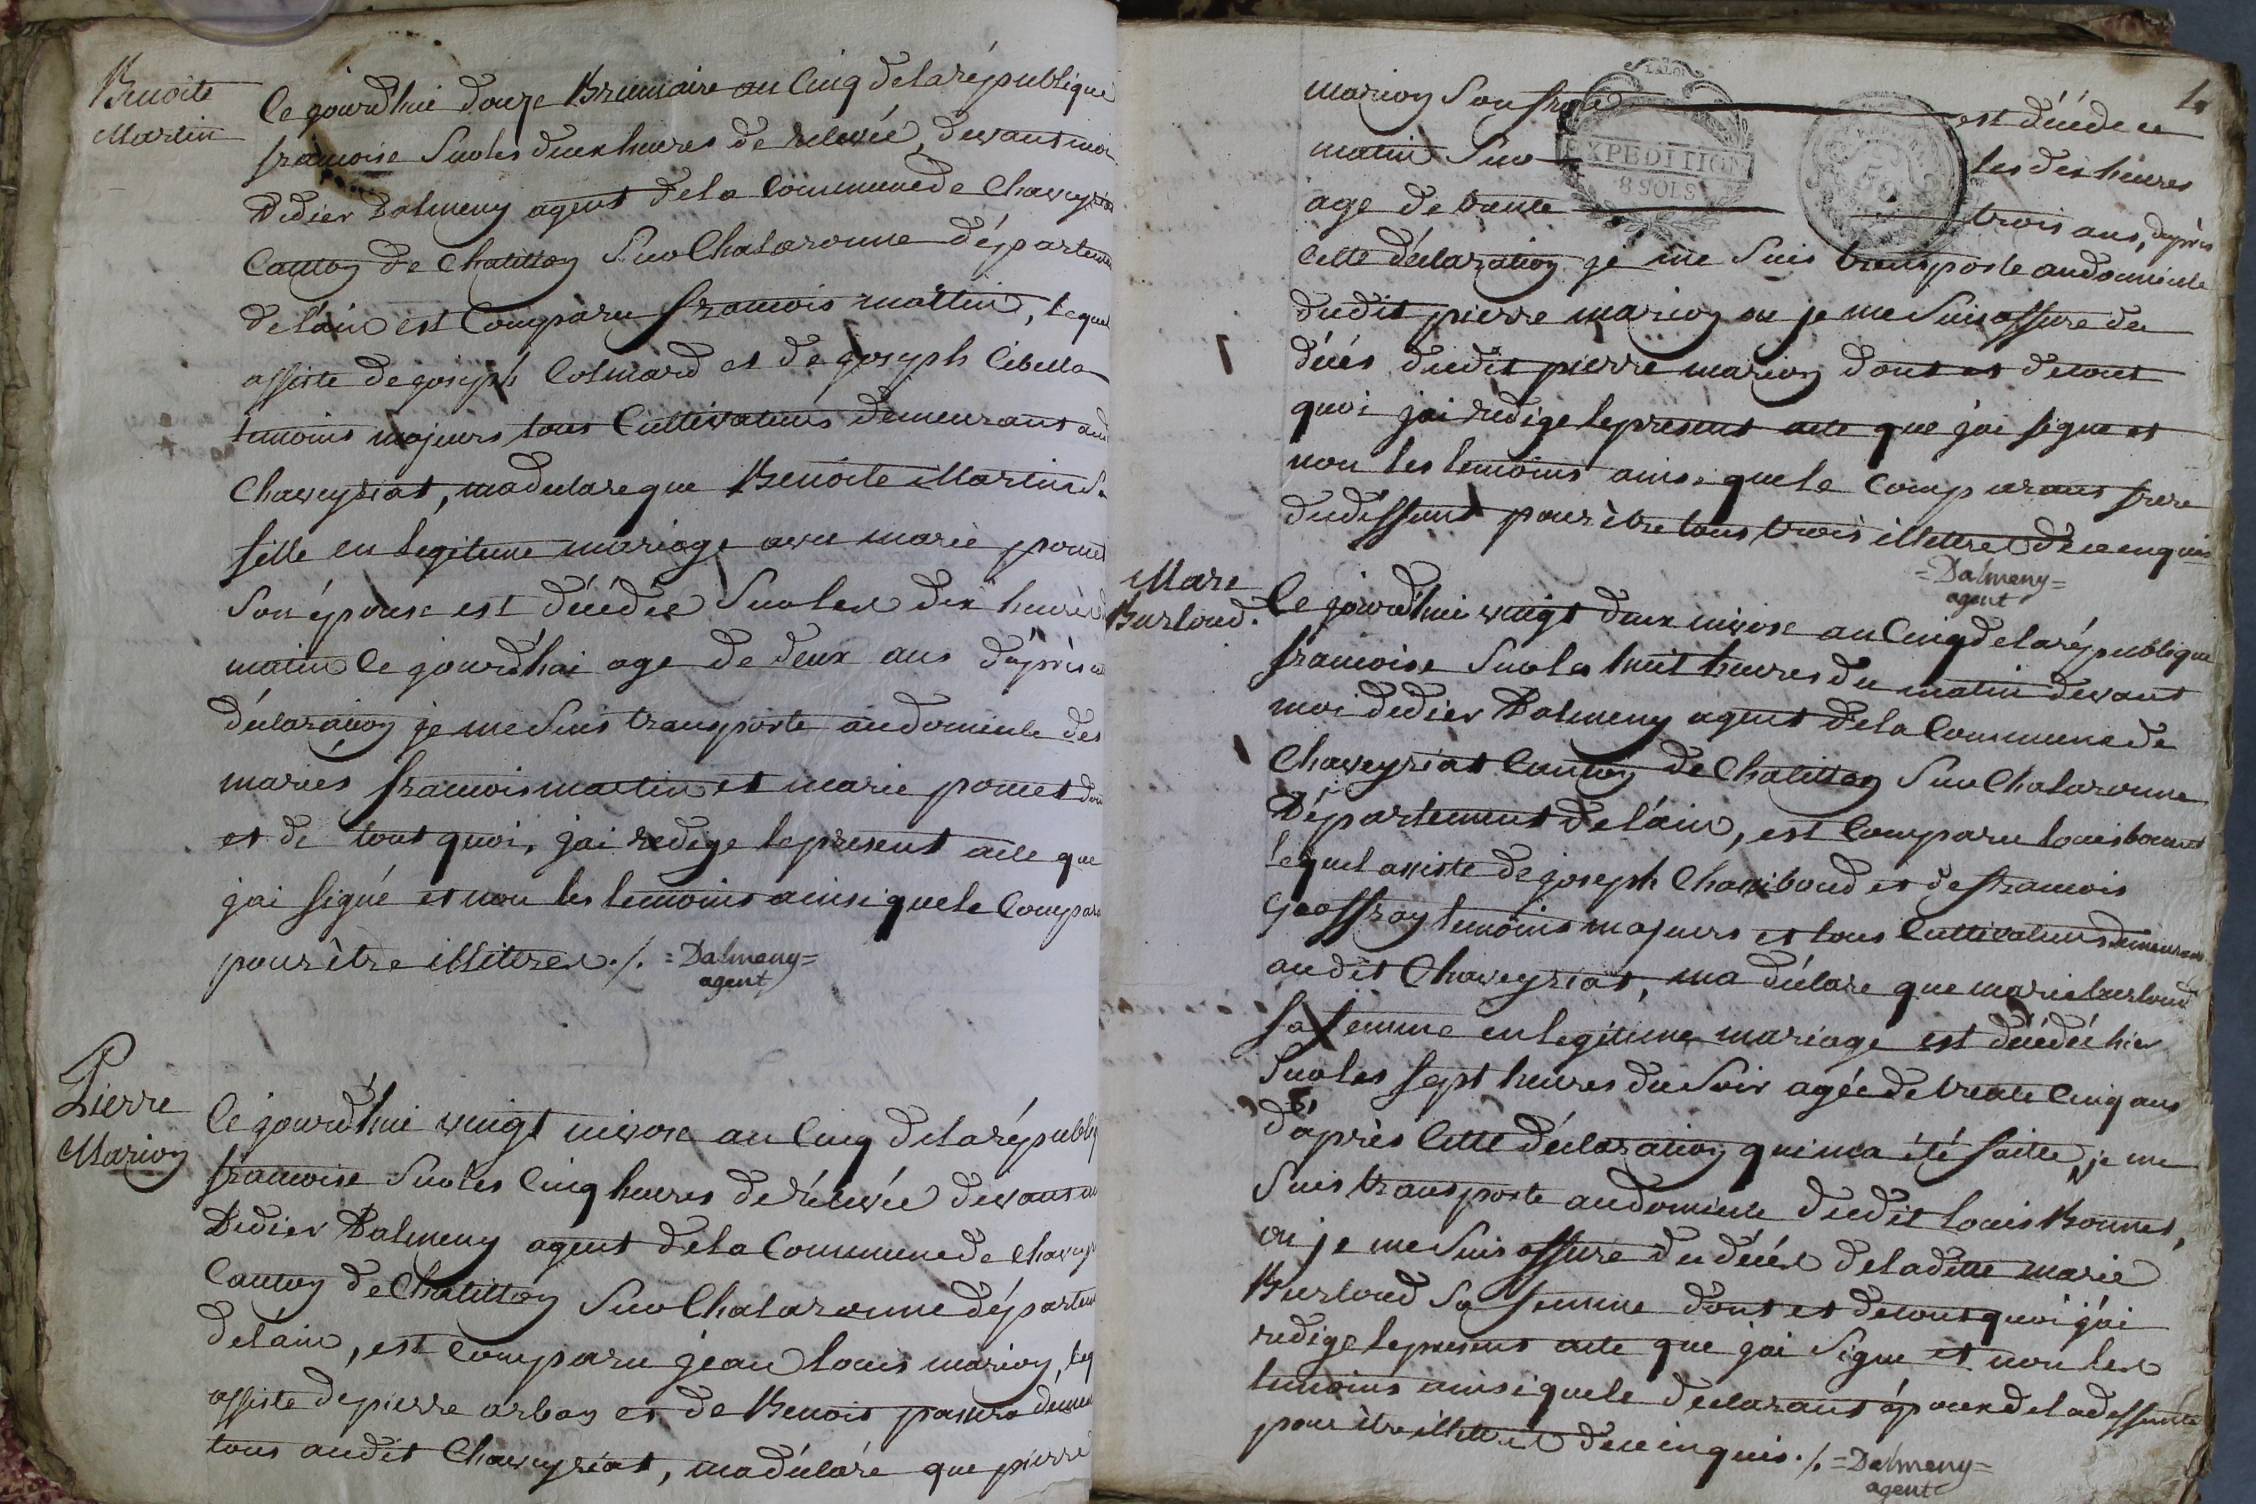 Benoite
Martin
Ce jourd'hui douze Brumaire an Cinq de la république
francoise Sur les deux heures de relevée, devant moi
Didier Dalmeny agent de la Commune de Chaveyriat
Canton de Chatillon Sur Chalaronne départemen
de l'ain est Comparu francois martin, lequel
assiste de joseph Colmard et de joseph Cibella
temoins majeurs tous Cultivateurs demeurans aud
Chaveyriat, ma declare que Benoite Martin Sa
fille en legitime mariage avec marie pomet
Son épouse est décédée Sur les dix heures
matin Ce jourd'hui age de deux ans d'après
déclaration je me Suis transporte au domicile des
maries francois martin et marie pomet dont
et de tout quoi, j'ai redige le present acte que
j'ai signé et non les temoins ainsi que le Compar
pour être illittres ./. =Dalmeny=
agent
Pierre
Marion
Ce jourd'hui vingt nivose an Cinq de la républiq
francoise Sur les Cinq heures de rélevée devant
Didier Dalmeny agent de la Commune de Chavey
Canton de Chatillon Sur Chalaronne départem
de l'ain, est Comparu jean louis marion, leq
assiste de pierre arban et de Benoit demeu
tous audit Chaveyriat, ma déclaré que pierre
1
marion Son frere est décéde ce
LA LOI
EXPEDITION
8 SOLS
matin Sur les dix heures
age de trente trois ans, daprès
Cette déclaration je me Suis transporte au domicile
dudit pierre marion ou je me Suis assure du
décés dudit pierre marion dont et de tout
quoi j'ai redige le present acte que j'ai signe et
non les temoins ainsi que le Comparant frere
du deffunt pour être tous trois illettres de ce enquis
=Dalmeny=
agent
Marie
Burloud.
Ce jourd'hui vingt deux nivose an Cinq de la république
francoise Sur les huit heures du matin devant
moi didier Dalmeny agent de la Commune de
Chaveyriat Canton de Chatillon Sur Chalaronne
Département de l'ain, est Comparu louis bonnet
lequel assiste de joseph Chaniboud et de francois
geoffray temoins majeurs et tous Cultivateurs demeurant
audit Chaveyriat, ma déclare que marie burloud
Sa femme en legitime mariage est décédée hier
Sur les sept heures du Soir agée de trente Cinq ans
d'après Cette déclaration qui m'a été faitte, je me
Suis transporte au domicile dudit louis Bonnet,
ou je me Suis assure du décés de la ditte marie
Burloud Sa femme dont et de tout quoi j'ai
redige le present acte que j'ai Signe et non les
temoins ainsi que le declarant époux de la deffunte
pour être illittres de ce enquis ./. =Dalmeny=
agent